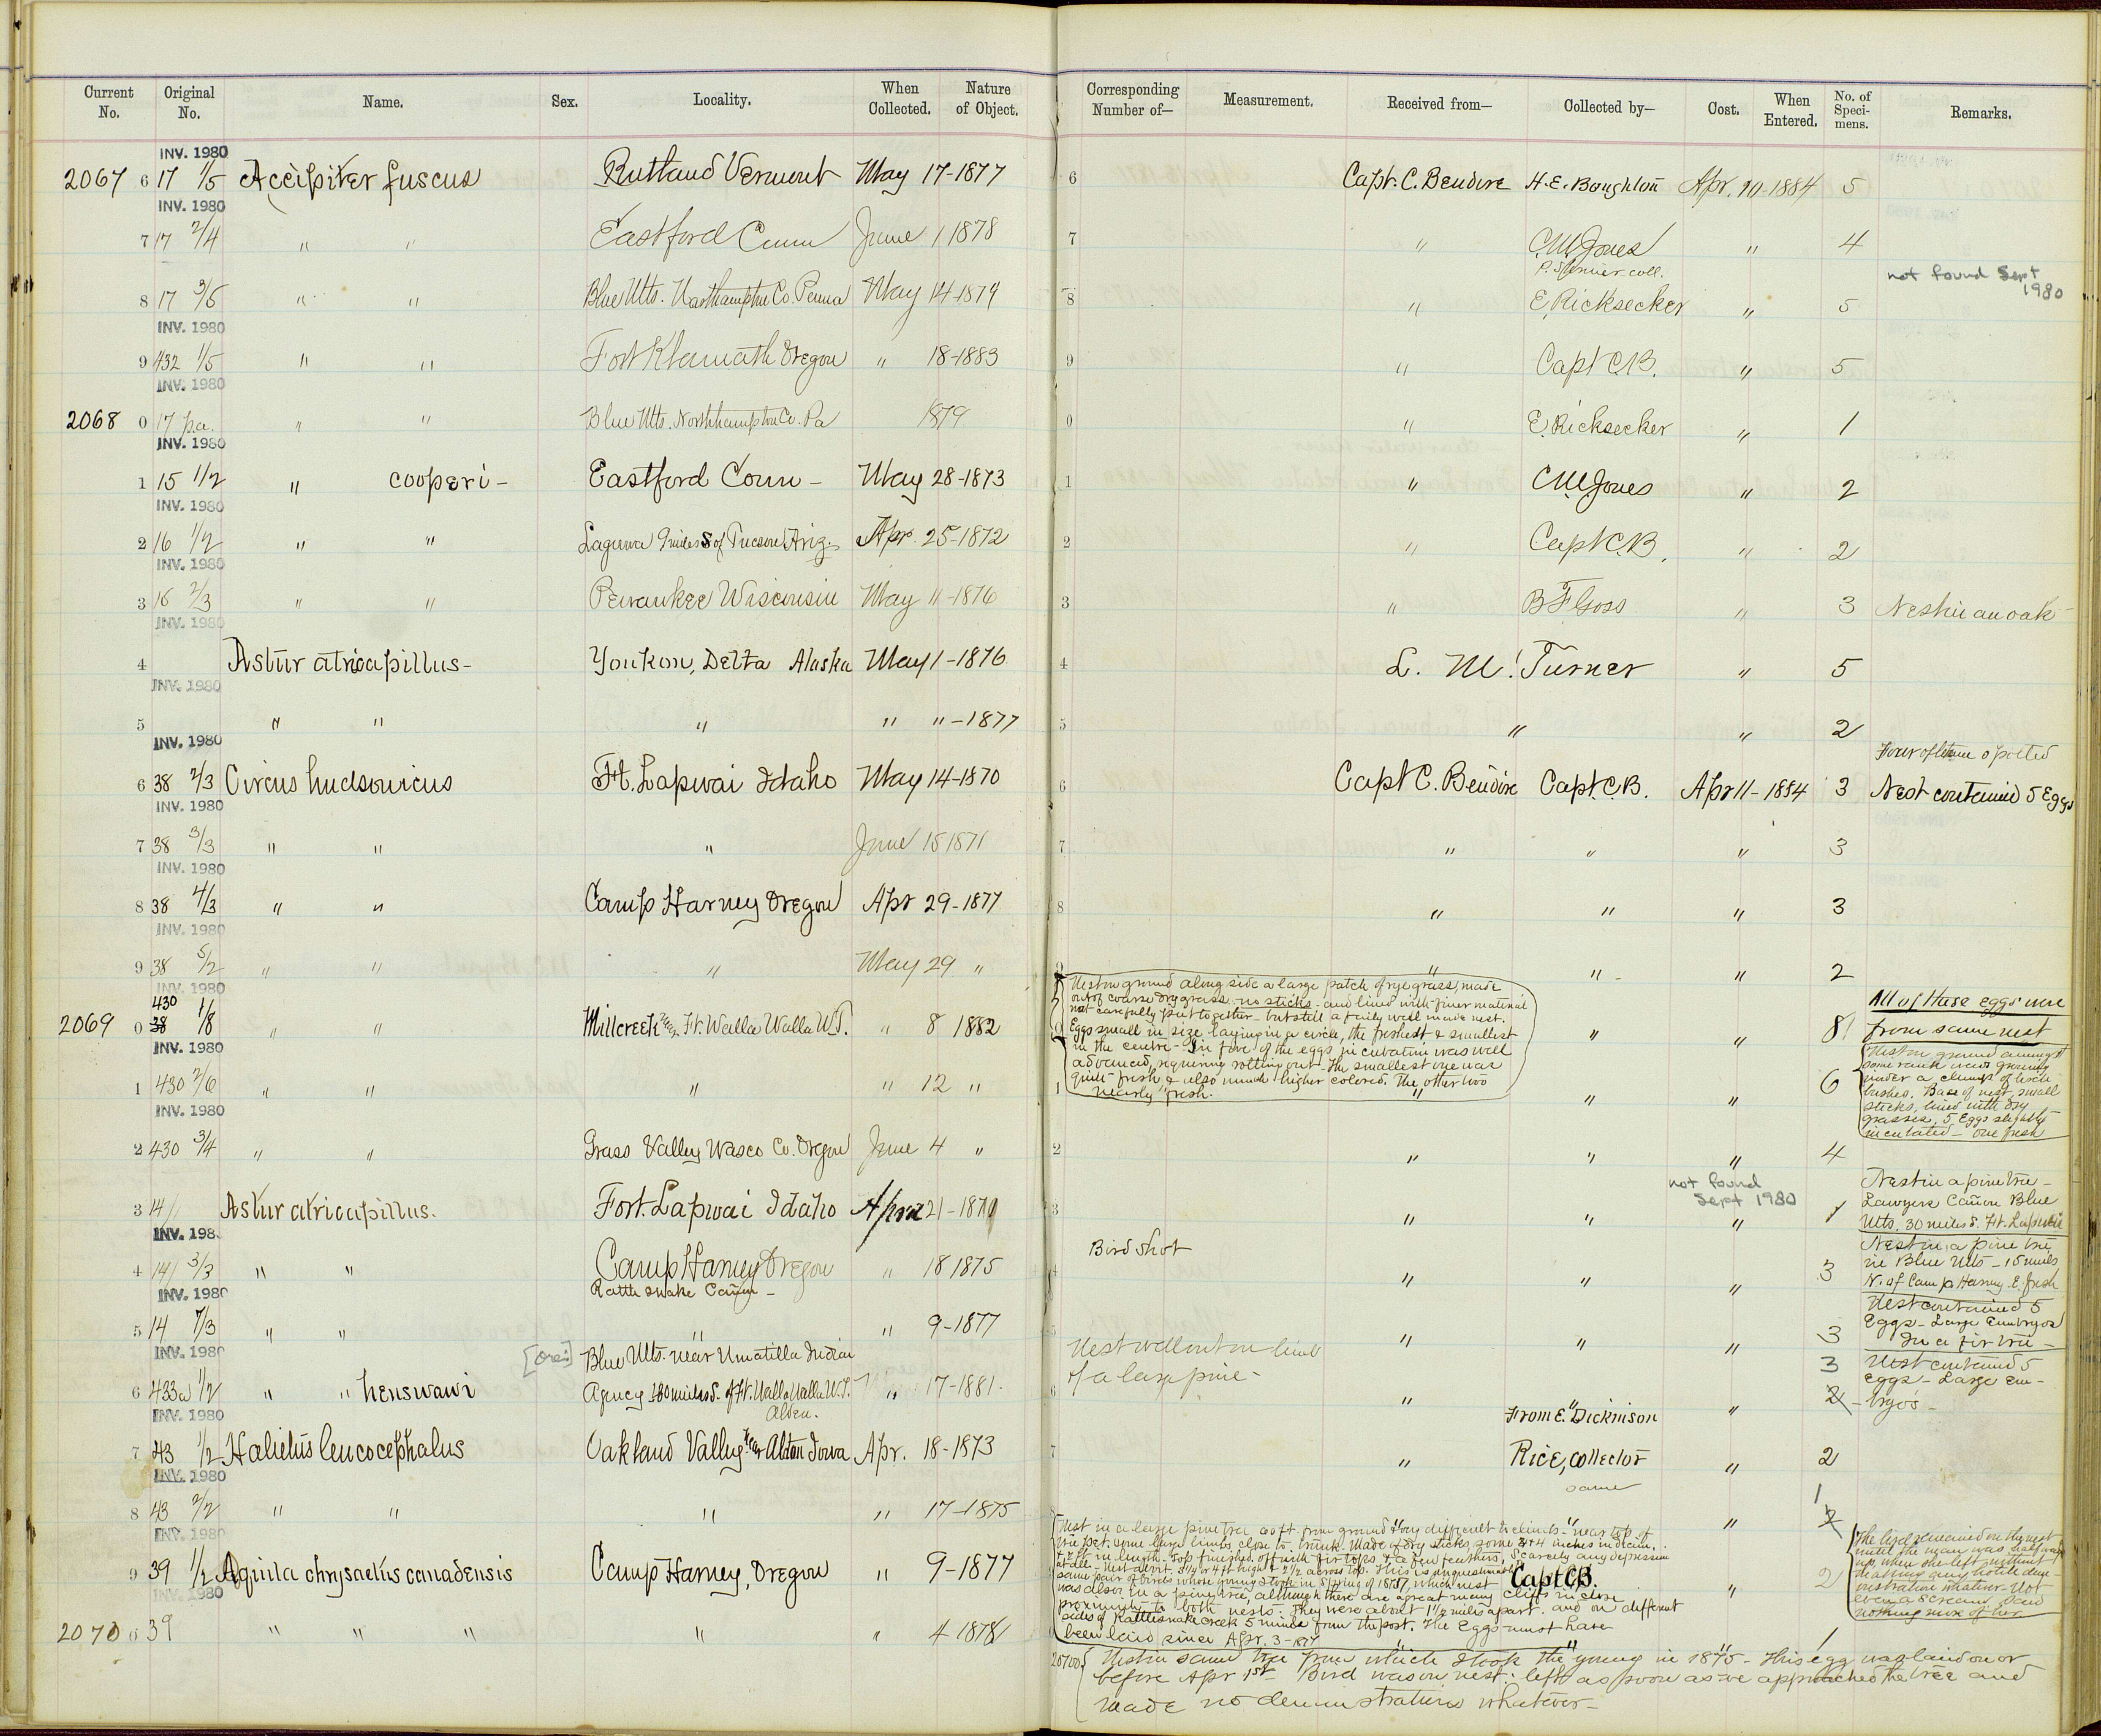 Current No.
Original No.
Name.
Sex.
Locality.
When Collected.
Nature of Object.
Corresponding Number of—
Measurement.
Received from—
Collected by—
Cost.
When Entered.
No. of Specimens.
Remarks.
INV. 1980
2067 6 17 1/5 Accipiter fuscus Rutland Vermont May 17-1877 6 Capt. C. Bendire H. E. Boughton Apr. 1884 5
INV. 1980
7 17 2/4 " " Eastford Conn June 1 1878 7 " C.M. Jones " 4
P. Skinner coll.
not found Sept 1980
8 17 3/5 " " Blue Mts. Northampton Co. Penna May 14-1879 8 " E. Ricksecker " 5
INV. 1980
9 432 1/5 " " Fort Klamath Oregon " 18-1883 9 " Capt C.B. " 5
INV. 1980
2068 0 17 p.a. " " Blue Mts. Northhampton Co. Pa 1879 0 " E. Ricksecker " 1
INV. 1980
1 15 1/2 " cooperi - Eastford Conn - May 28-1873 1 " C.M. Jones " 2
INV. 1980
2 16 1/2 " " Laguna 9 miles S of Tucson Ariz. Apr. 25-1872 2 " Capt C.B. " 2
INV. 1980
3 16 2/3 " " Pewaukee Wisconsin May 11-1876 3 " B F Goss " 3 Nest in an oak
INV. 1980
4 Astur atricapillus - Youkon, Delta Alaska May 1-1876 4 L. M. Turner " 5
INV. 1980
5 " " " " " -1877 5 " " 2
INV. 1980
6 38 2/3 Circus hudsonicus Ft. Lapwai Idaho May 14-1870 6 Capt C. Bendire Capt. C.B. Apr 11-1884 3 Nest contained 5 Eggs
Four of them spotted
INV. 1980
7 38 3/3 " " " June 15 1871 7 " " " 3
INV. 1980
8 38 4/3 " " Camp Harney Oregon Apr 29-1877 8 " " " 3
INV. 1980
9 38 5/2 " " " May 29 " 9 " " - " 2
INV. 1980
430
2069 0 38 1/8 " " Millcreek near Ft. Walla Walla W.T. " 8 1882 0 " " 8 All of these eggs were
from same nest
Nest on ground along side a large patch of rye grass, made
out of coarse dry grass - no sticks - and lined with finer material
not carefully put together - but still a fairly well made nest.
Eggs small in size laying in a circle, the freshest & smallest
in the centre - In five of the eggs incubation was well
advanced, requiring rotting out - The smallest one was
quite fresh & also much higher colored. The other two
nearly fresh.
INV. 1980
1 430 2/6 " " " " 12 " 1 " " " 6
Nest on ground amongst
some rank weeds growing
under a clump of
bushes. Base of nest, small
sticks, lined with dry
grasses, 5 Eggs slightly
incubated - one fresh
INV. 1980
2 430 3/4 " " Grass Valley Wasco Co. Oregon June 4 " 2 " " " 4
not found Sept 1980
3 14/ Astur atricapillus. Fort. Lapwai Idaho April 21-1870 3 " " " 1
Nest in a pine tree -
Lawyers Cañon Blue
Mts. 30 miles S. Ft. Lapwai
INV. 198
4 14/ 3/3 " " Camp Harney Oregon " 18 1875 4 Bird shot " " " 3
Rattle snake Cañon -
Nest in a pine tree
in Blue Mts - 15 miles
N. of Camp Harney E. fresh
INV. 1980
5 14 7/3 " " " " 9-1877 5 " " " 3
Nest contained 5
Eggs - Large Embryos
In a fir tree -
INV. 1980
[Ore.] Blue Mts. near Umatilla Indian
6 433a 1/2 " " henswawi Agency 30 miles S. of Ft. Walla Walla W.T. " 17-1881. 6 " " " 3 2
Nest well out on limb
of a large pine -
Nest contained 5
eggs - Large em-
bryos -
INV. 1980
Alden.
From E. Dickinson
7 43 1/2 Halietus leucocephalus Oakland Valley near Alden Iowa Apr. 18-1873 7 " Rice, collector " 2
INV. 1980
8 43 2/2 " " " " 17-1875 8 " same " 1 2
INV. 1980
9 39 1/2 Aquila chrysaetus canadensis Camp Harney, Oregon " 9-1877 Capt C.B. " 2
Nest in a large pine tree 60 ft. from ground & very difficult to climb - near top of
tree set some large limbs close to trunk. Made of dry sticks, some 3 & 4 inches in diam.
in length - top finished off with fir tops & a few feathers, Scarcely any depression
at all - nest about 3 1/4 or 4 ft high & 2 1/2 across top. This is unquestionably
same pair of birds whose young I took in Spring of 1875, which nest
was also in a pine tree, although there are a great many cliffs in close
proximity to both nests. They were about 1 1/2 miles apart. and on different
sides of Rattlesnake creek 5 miles from the post. The Eggs must have
been laid since Apr. 3-1877
The bird remained on the nest
until the man was half way
up, when she left without
making any hostile dem-
onstration whatever. Not
even a scream. Saw
nothing more of her.
INV. 1980
2070 0 39 " " " " " 4 1878 " " " 1
20700 Nest in same tree from which I took the young in 1875 - This egg was laid on or
before Apr 1st Bird was on nest: left as soon as we approached the tree and
made no demonstrations whatever -